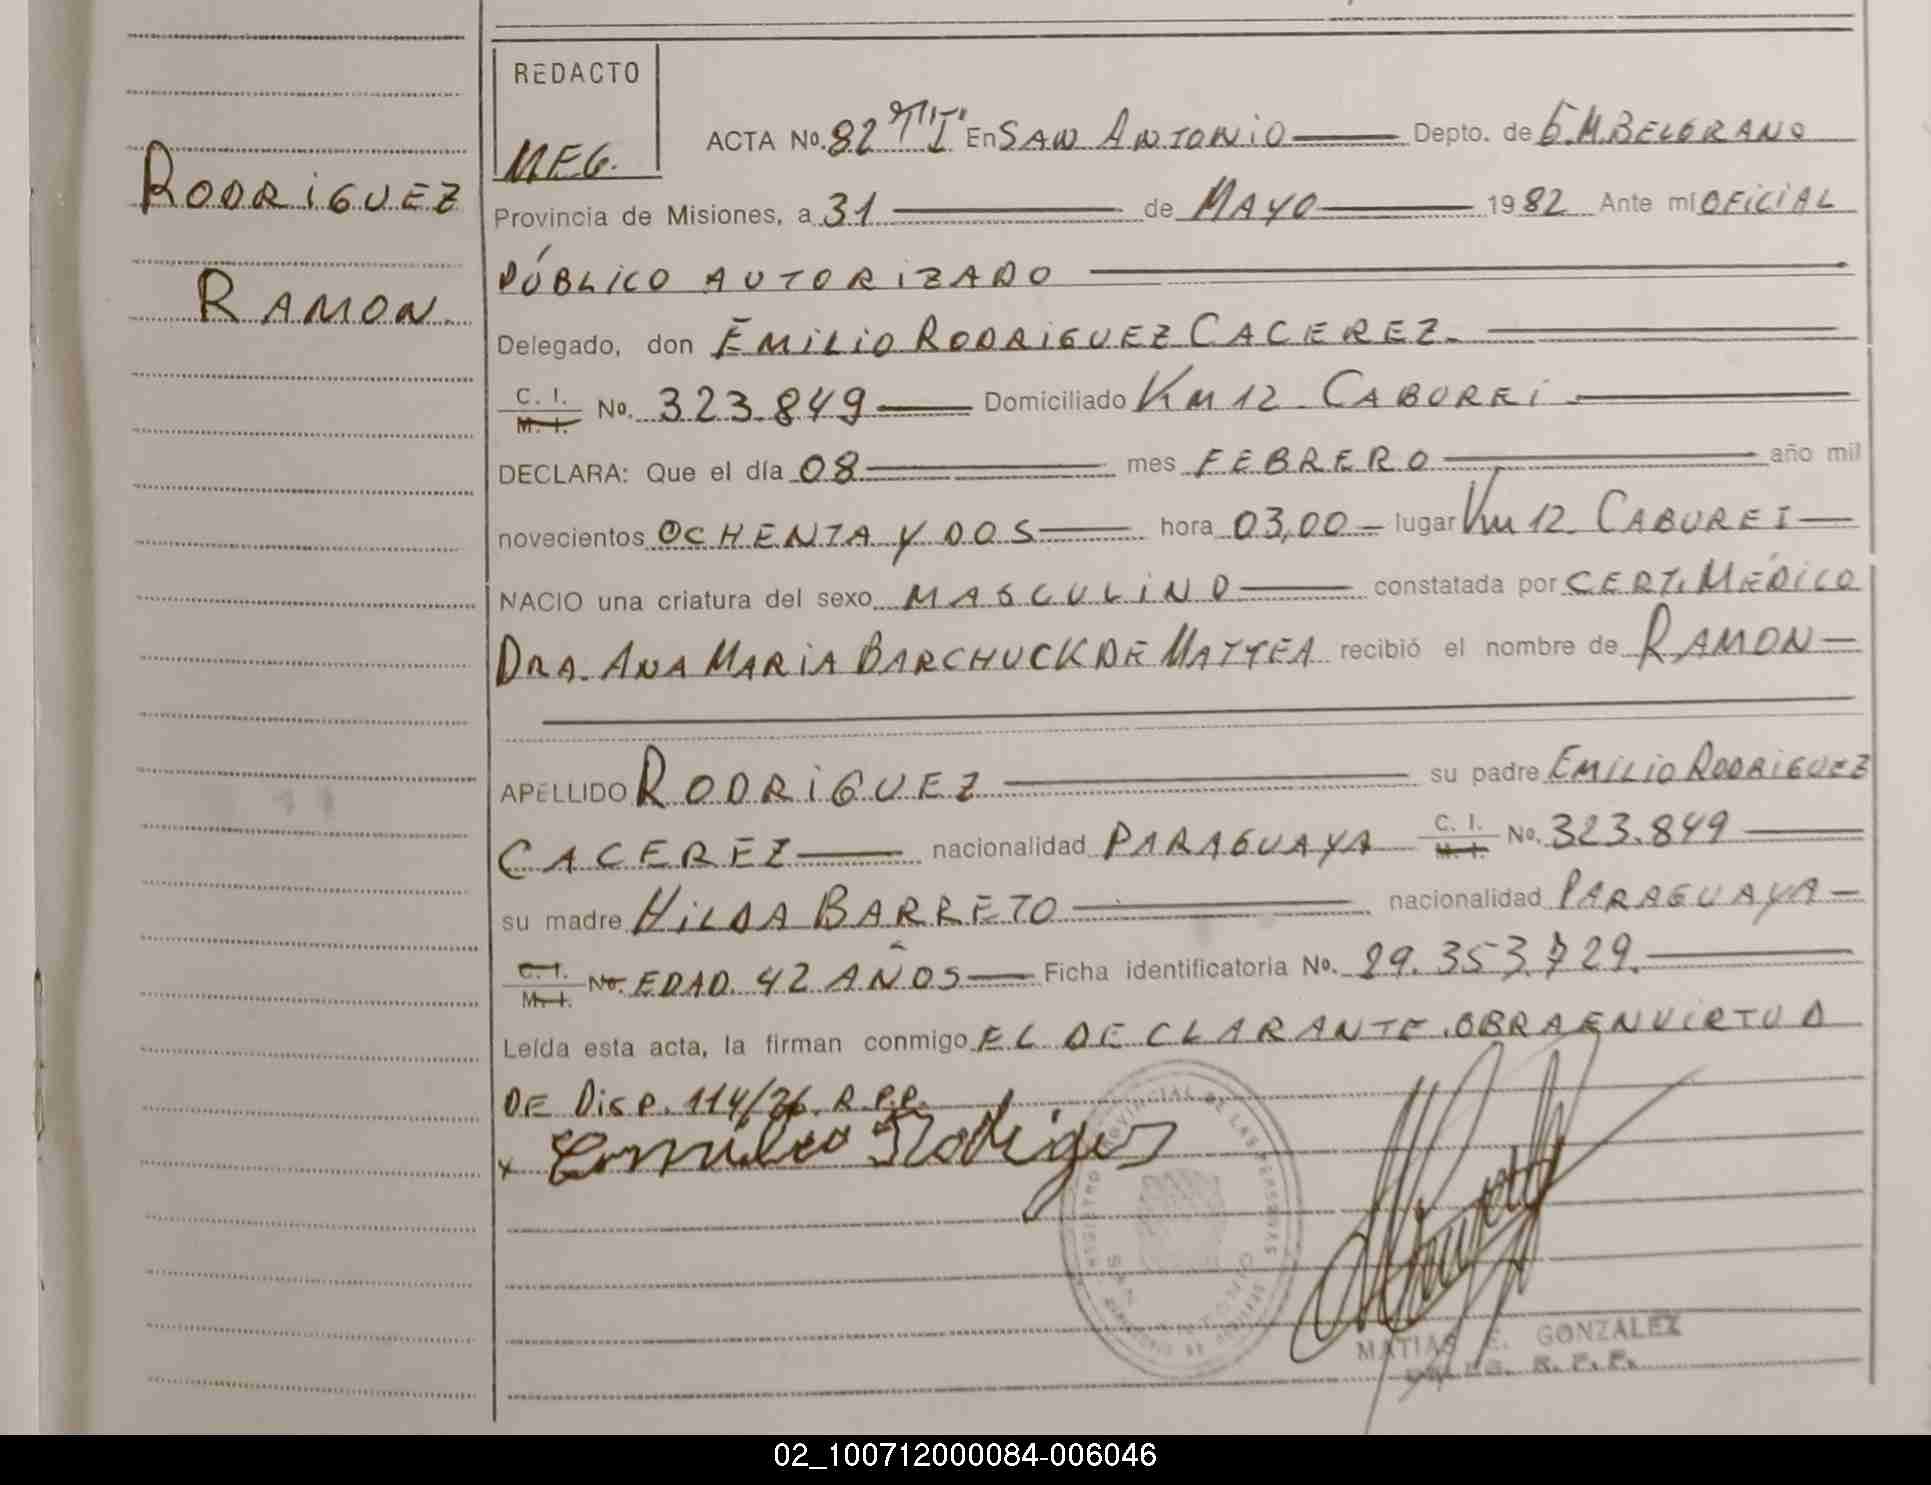 RODRIGUEZ
RAMON.
REDACTO
MEG.
ACTA No. 82 "T I" En SAN ANTONIO Depto. de G.M.BELGRANO
Provincia de Misiones, a 31 de MAYO 1982 Ante mí OFICIAL
PÚBLICO AUTORIZADO
Delegado, don EMILIO RODRIGUEZ CACEREZ.
C. I.
M. I. No. 323.849 Domiciliado Km 12 CABUREI
DECLARA: Que el día 08 mes FEBRERO año mil
novecientos OCHENTA Y DOS hora 03,00 lugar Km 12 CABUREI
NACIO una criatura del sexo MASCULINO constatada por CERT. MÉDICO
DRA. ANA MARIA BARCHUCK DE MATTEA recibió el nombre de RAMON
APELLIDO RODRIGUEZ su padre EMILIO RODRIGUEZ
CACEREZ nacionalidad PARAGUAYA C. I.
M. I. No. 323.849
su madre HILDA BARRETO nacionalidad PARAGUAYA
C. I.
M. I. No. EDAD 42 AÑOS Ficha identificatoria No. 29.353.729.
Leída esta acta, la firman conmigo EL DECLARANTE. OBRA EN VIRTUD
DE DISP. 114/76. R.P.P.
x Emilio Rodrigues
REGISTRO PROVINCIAL DE LAS PERSONAS
SAN ANTONIO
MATIAS E. GONZALEZ
DELEG. R. P. P.
02_100712000084-006046